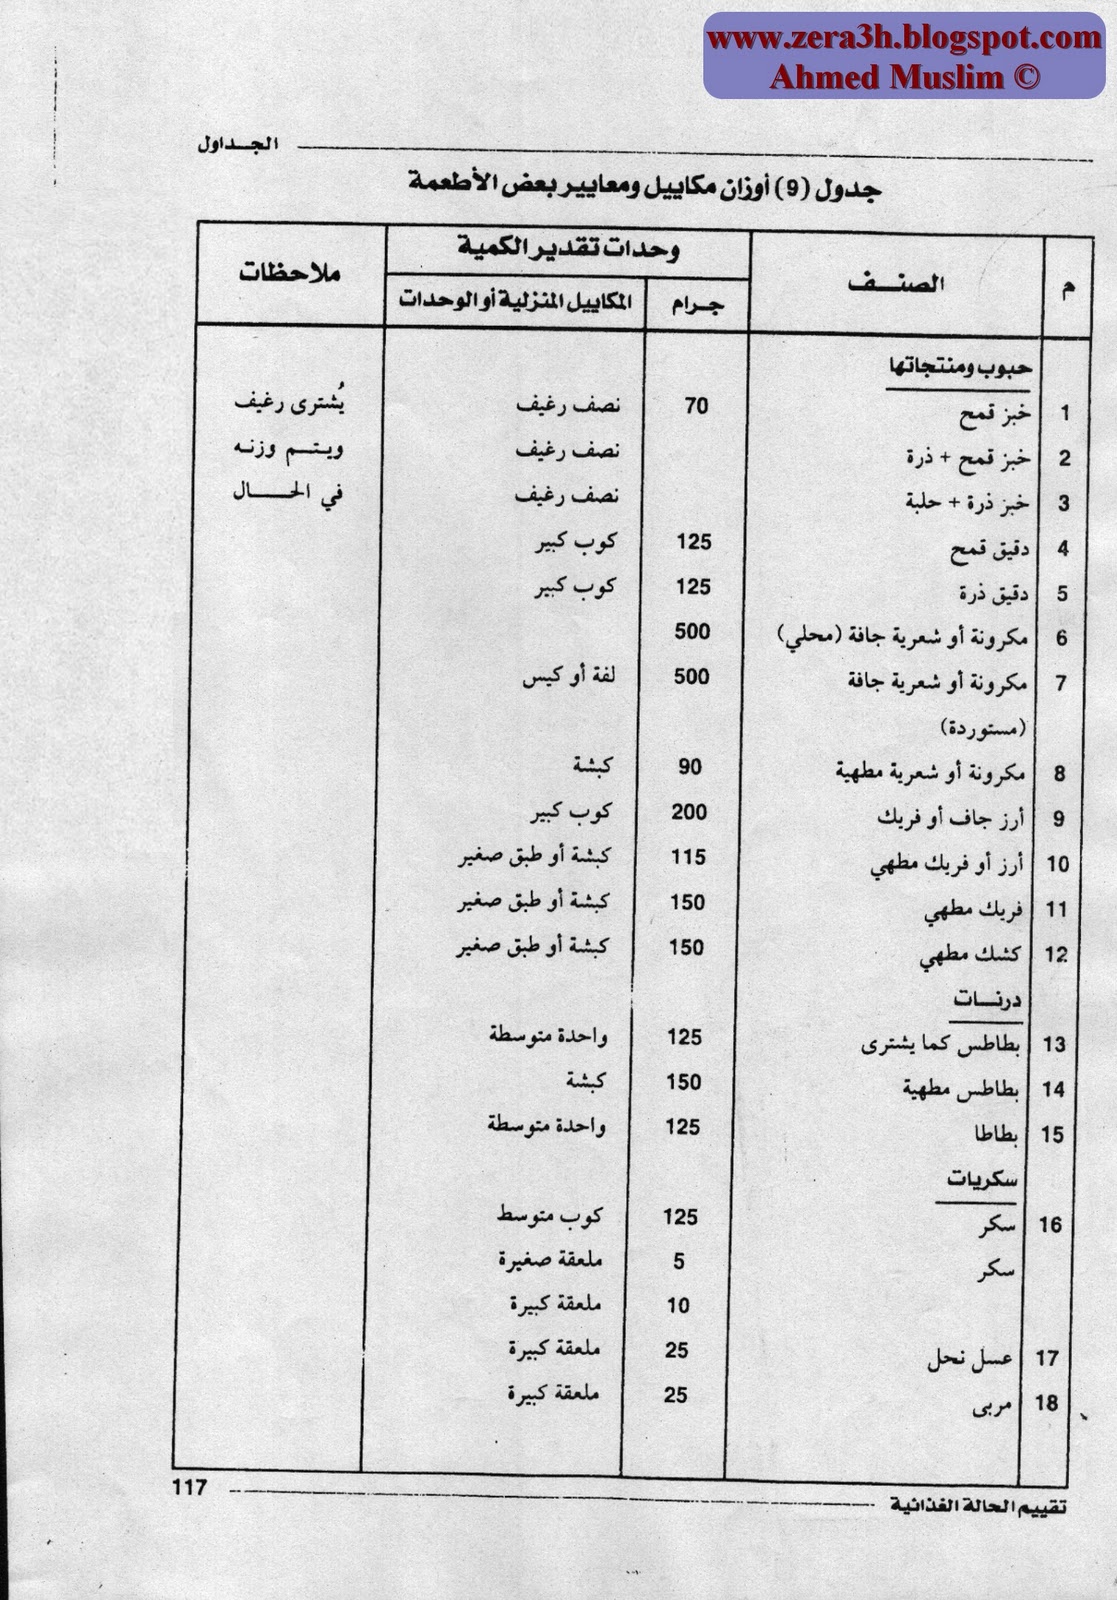 www.zera3h.blogspot.com
Ahmed Muslim ©
الجداول
جدول (9) أوزان مكاييل ومعايير بعض الأطعمة
م الصنف وحدات تقدير الكمية ملاحظات
جرام المكاييل المنزلية أو الوحدات
حبوب ومنتجاتها
1 خبز قمح 70 نصف رغيف يُشترى رغيف
2 خبز قمح + ذرة نصف رغيف ويتم وزنه
3 خبز ذرة + حلبة نصف رغيف في الحال
4 دقيق قمح 125 كوب كبير
5 دقيق ذرة 125 كوب كبير
6 مكرونة أو شعرية جافة (محلي) 500
7 مكرونة أو شعرية جافة 500 لفة أو كيس
(مستوردة)
8 مكرونة أو شعرية مطهية 90 كبشة
9 أرز جاف أو فريك 200 كوب كبير
10 أرز أو فريك مطهي 115 كبشة أو طبق صغير
11 فريك مطهي 150 كبشة أو طبق صغير
12 كشك مطهي 150 كبشة أو طبق صغير
درنات
13 بطاطس كما يشترى 125 واحدة متوسطة
14 بطاطس مطهية 150 كبشة
15 بطاطا 125 واحدة متوسطة
سكريات
16 سكر 125 كوب متوسط
سكر 5 ملعقة صغيرة
10 ملعقة كبيرة
17 عسل نحل 25 ملعقة كبيرة
18 مربى 25 ملعقة كبيرة
تقييم الحالة الغذائية 117